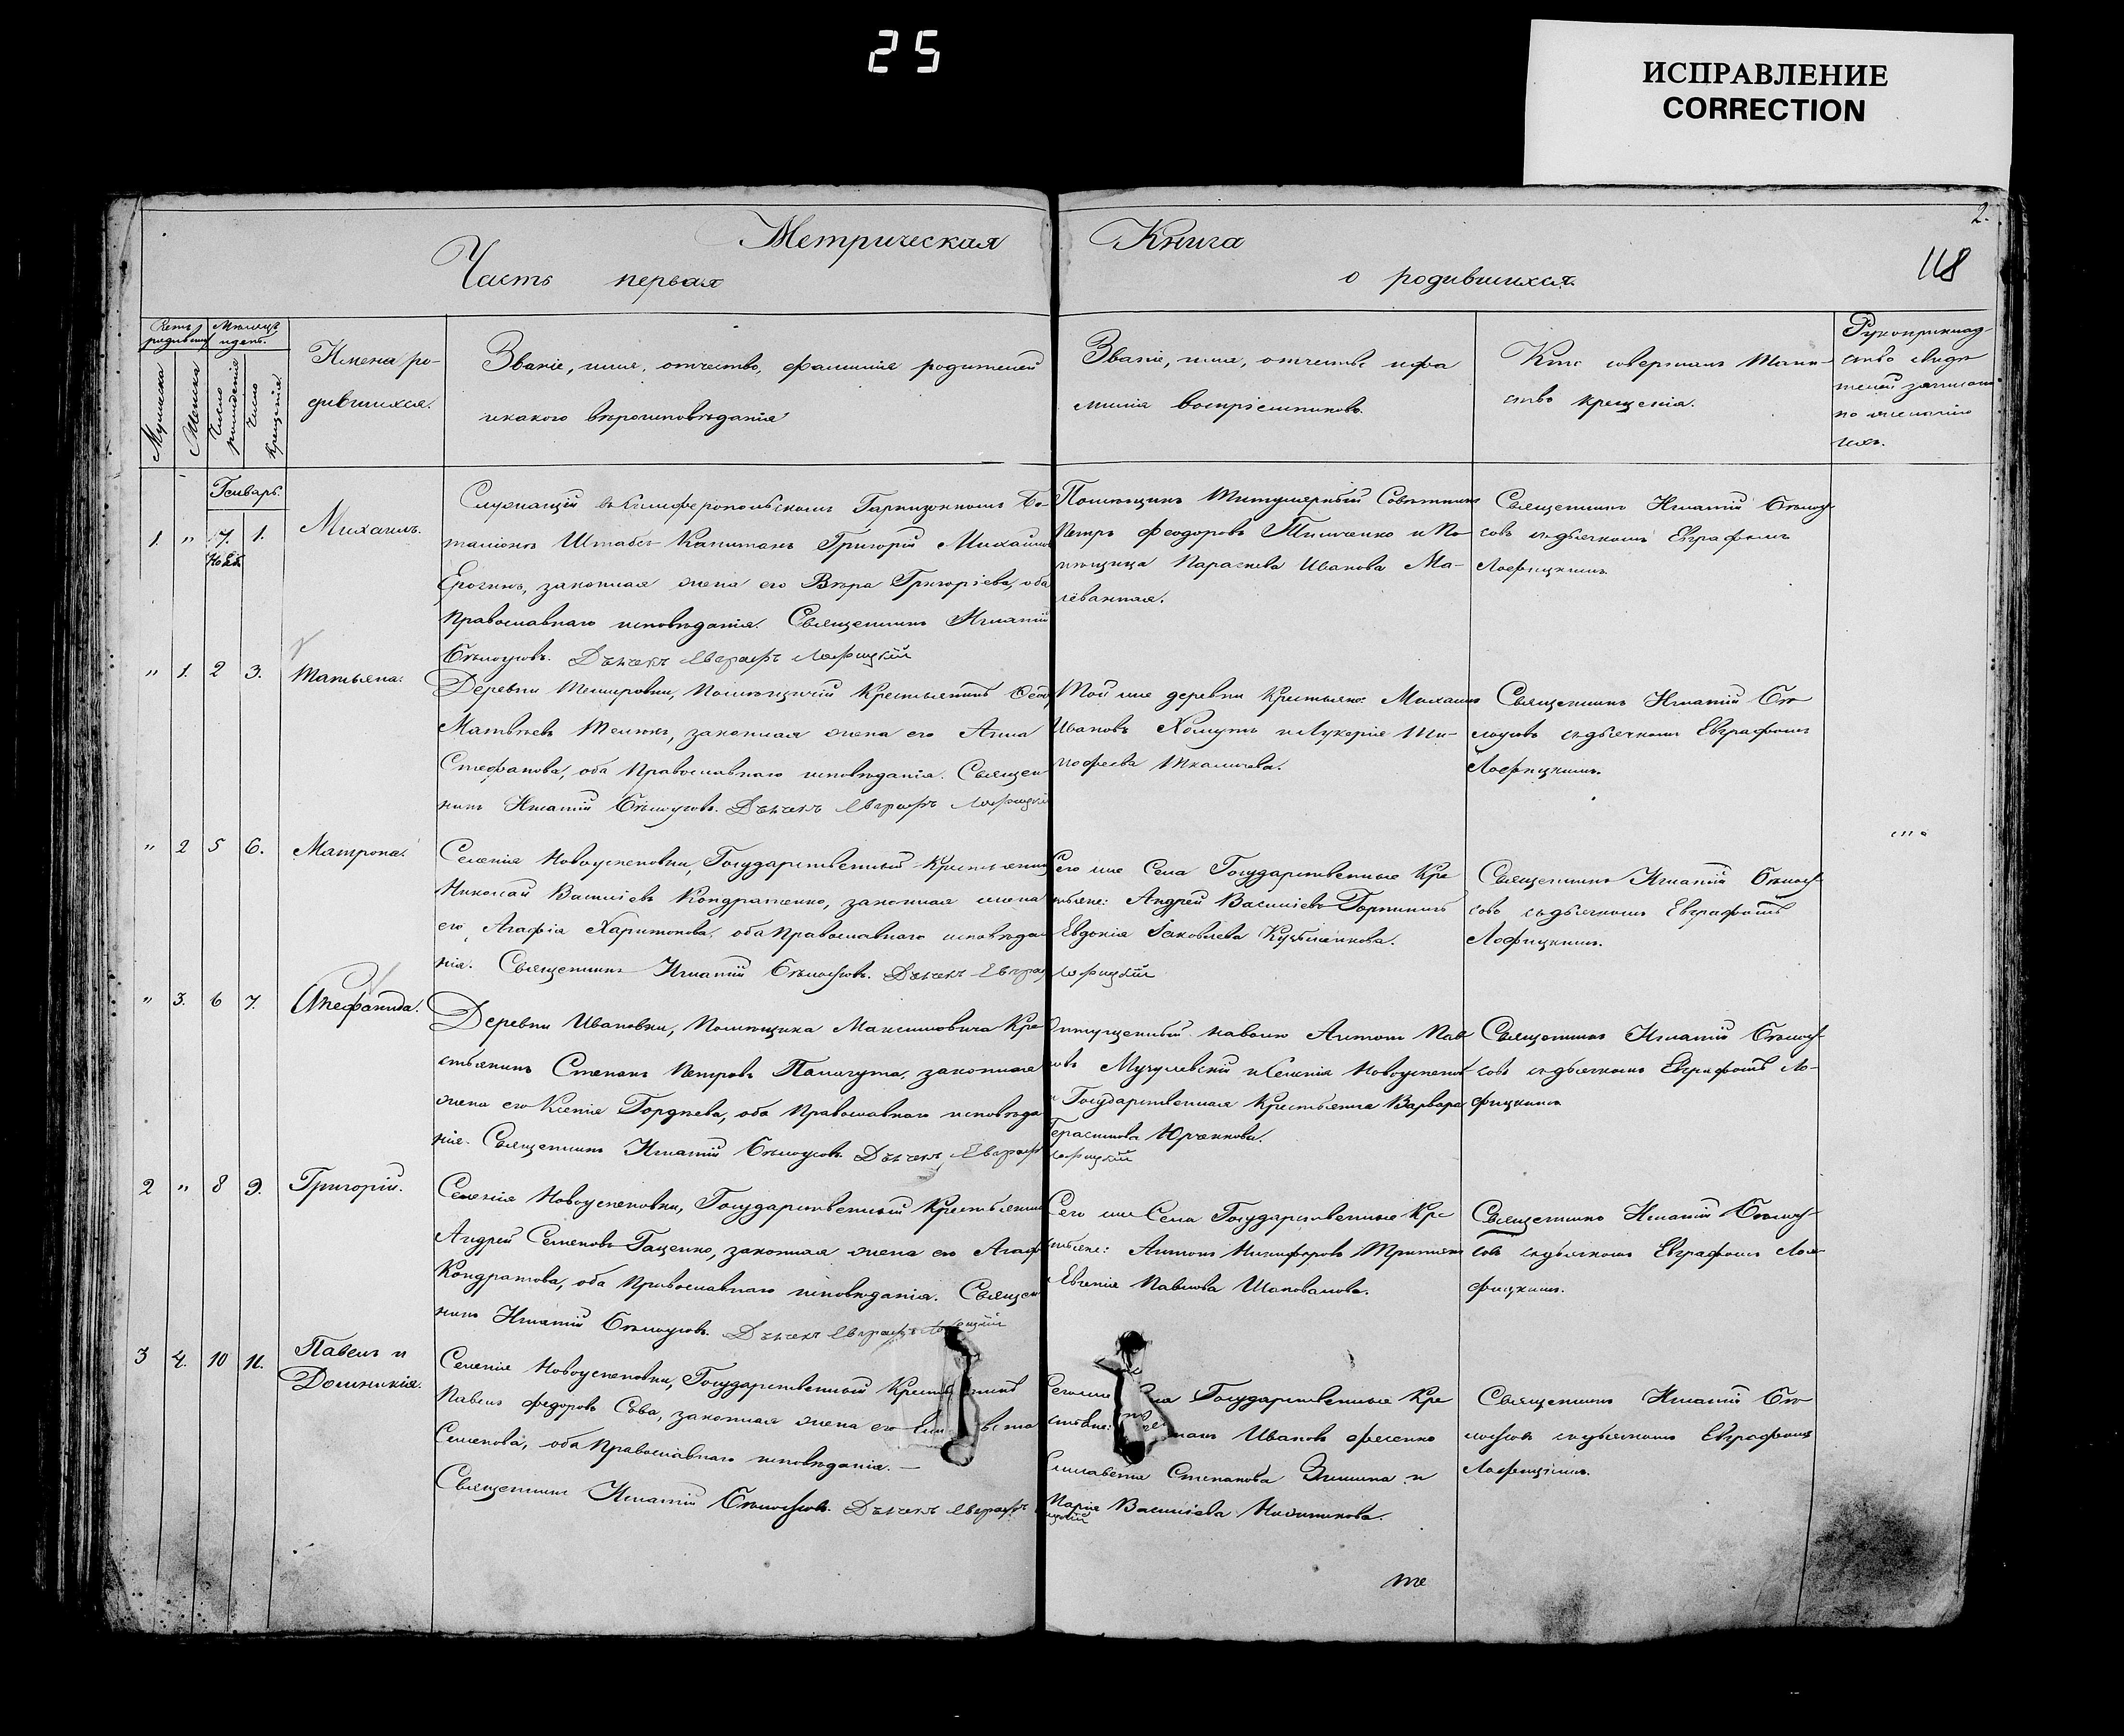 25
ИСПРАВЛЕНИЕ
CORRECTION
2.
118
Метрическая Книга
Часть первая о родившихся.
Мужеска
Женска
Число рожденія
Число Крещенія
Имена ро-
дившихся.
Званіе, имя, отчество, фамилія родителей
и какого вѣроисповѣданія
Званіе, имя, отчество и фа
милія воспріемниковъ.
Кто совершалъ Таин-
ство крещенія.
Рукоприклад-
ство свидѣ
телей записи
по желанію
ихъ.
Генварь.
1. " 7. 1.
Михаилъ.
Служащій въ Симферопольскомъ Гарнизонномъ Ба-
таліонѣ Штабсъ-Капитанъ Григорій Михайловъ
Ерогинъ, законная жена его Вѣра Григоріева, оба
Православнаго исповѣданія. Священникъ Игнатій
Бѣлоусовъ. Дьячекъ Евграфъ Лофицкій
Помѣщикъ Титулярный Совѣтникъ
Петръ Феодоровъ и По-
мѣщица Параскева Иванова Ма-
леванная.
Священникъ Игнатій Бѣлоу-
совъ съ дьячкомъ Евграфомъ
Лофицкимъ.
" 1. 2 3.
Татьяна.
Деревни Темировки, Помѣщичій Крестьянинъ
Матвѣевъ, законная жена его Анна
Стефанова, оба Православнаго исповѣданія. Священ
никъ Игнатій Бѣлоусовъ. Дьячекъ Евграфъ Лофицкій
Той же деревни Крестьяне: Михаилъ
Ивановъ Хомутъ и Лукерія Ти-
мофеева Ткаличева.
Священникъ Игнатій Бѣ
лоусовъ съ дьячкомъ Евграфомъ
Лофицкимъ.
" 2 5 6.
Матрона.
Селенія Новоуспеновки, Государственный Крестьянинъ
Николай Василіевъ Кондратенко, законная жена
его Агафія Харитонова, оба Православнаго исповѣда
нія. Священникъ Игнатій Бѣлоусовъ. Дьячекъ Евграфъ Лофицкій
Сего же Села Государственные Кре
стьяне: Андрей Василіевъ
Евдокія Іаковлева Кузьменкова.
Священникъ Игнатій Бѣлоу-
совъ съ дьячкомъ Евграфомъ
Лофицкимъ.
" 3. 6 7.
Стефанида.
Деревни Ивановки, Помѣщика Максимовича Кре
стьянинъ Степанъ Петровъ Паламута, законная
жена его Ксенія Гордѣева, оба Православнаго исповѣда
нія. Священникъ Игнатій Бѣлоусовъ. Дьячекъ Евграфъ Лофицкій
Отпущенный на волю Антонъ Пав
ловъ и Селенія Новоуспенов-
Государственная Крестьянка Варвара
Герасимова Юрченкова.
Священникъ Игнатій Бѣлоу-
совъ съ дьячкомъ Евграфомъ Ло-
фицкимъ
2 " 8 9.
Григорій.
Селенія Новоуспеновки, Государственный Крестьянинъ
Андрей Семеновъ Гащенко, законная жена его Агаф
Кондратова, оба Православнаго исповѣданія. Священ
никъ Игнатій Бѣлоусовъ. Дьячекъ Евграфъ Лофицкій
Сего же Села Государственные Кре
стьяне: Антонъ Никифоровъ
Евгенія Павлова Шаповалова.
Священникъ Игнатій Бѣлоу-
совъ съ дьячкомъ Евграфомъ Ло-
фицкимъ.
3 4. 10 11.
Павелъ и
Домникія.
Селенія Новоуспеновки, Государственный
Павелъ Федоровъ Сова, законная жена его
Семенова, оба Православнаго исповѣданія. —
Священникъ Игнатій Бѣлоусовъ. Дьячекъ Евграфъ
Сего же Государственные Кре
стьяне: Ивановъ Фесенко
Елисавета Степанова Зимина и
Марія Василіева
Священникъ Игнатій Бѣ
лоусовъ съ дьячкомъ Евграфомъ
Лофицкимъ.